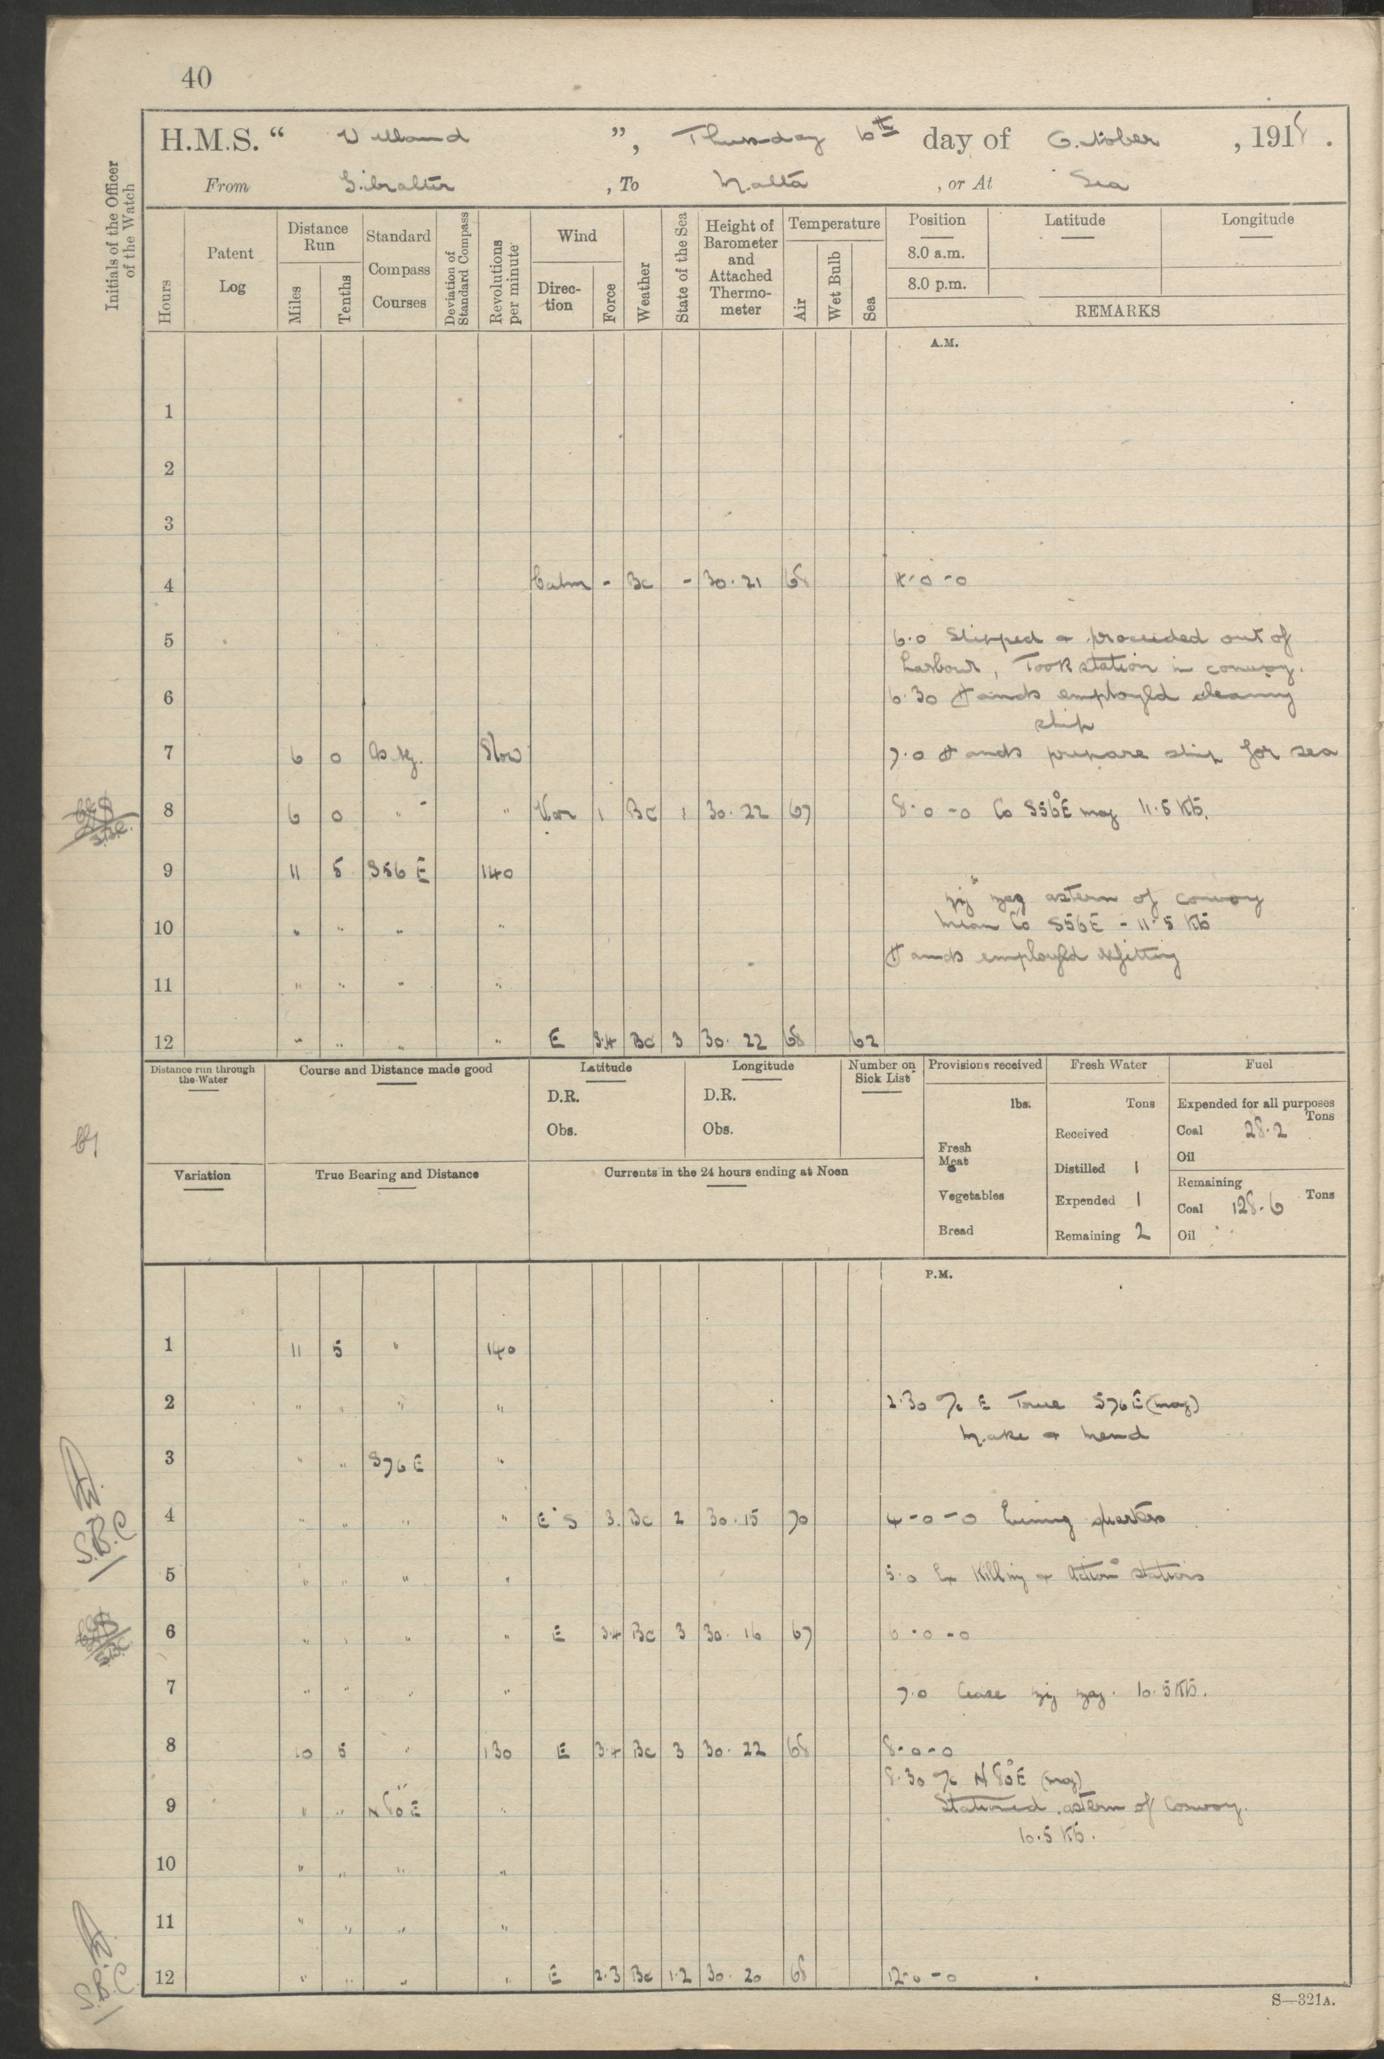 40
H.M.S. " Welland ", Thursday 6th day of October , 1918.
From Gibralter , To Malta , or At Sea
Initials of the Officer of the Watch
Hours
Patent Log
Distance Run
Miles
Tenths
Standard Compass Courses
Deviation of Standard Compass
Revolutions per minute
Wind
Direction
Force
Weather
State of the Sea
Height of Barometer and Attached Thermometer
Temperature
Air
Wet Bulb
Sea
Position
8.0 a.m.
8.0 p.m.
Latitude
Longitude
REMARKS
A.M.
1
2
3
4 Calm - Bc - 30.21 68 4-0-0
5 6.0 Slipped & proceeded out of
harbour, Took station in convoy.
6 6.30 Hands employed cleaning
ship
7 6 0 As req. Slow 7.0 Hands prepare ship for sea
8 6 0 " " " Var 1 Bc 1 30.22 67 8-0-0 Co S56°E mag 11.5 Kts.
9 11 5 S56E 140
zig zag astern of convoy
10 " " " " Mean Co S56E - 11.5 Kts
Hands employed refitting
11 " " " "
12 " " " " E 3.4 Bc 3 30.22 68 62
Distance run through the Water
Course and Distance made good
Latitude
D.R.
Obs.
Longitude
D.R.
Obs.
Number on Sick List
Provisions received
lbs.
Fresh Meat
Vegetables
Bread
Fresh Water
Tons
Received
Distilled 1
Expended 1
Remaining 2
Fuel
Expended for all purposes
Tons
Coal 28.2
Oil
Remaining
Tons
Coal 128.6
Oil
Variation
True Bearing and Distance
Currents in the 24 hours ending at Noon
P.M.
1 11 5 " 140
2 " " " " 2.30 A/c E True S76E (mag)
Make & Mend
3 " " S76E "
4 " " " " E'S 3. Bc 2 30.15 70 4-0-0 Evening quarters
5 " " " " 5.0 Ex Killing & Action stations
6 " " " " E 3.4 Bc 3 30.16 67 6-0-0
7 " " " " 7.0 Cease zig zag. 10.5 Kts.
8 10 5 " 130 E 3.4 Bc 3 30.22 68 8-0-0
8.30 A/c N80°E (mag)
9 " " N80E " Stationed astern of Convoy.
10.5 Kts.
10 " " " "
11 " " " "
12 " " " " E 2.3 Bc 1.2 30.20 68 12-0-0
S.B.C
S—321A.